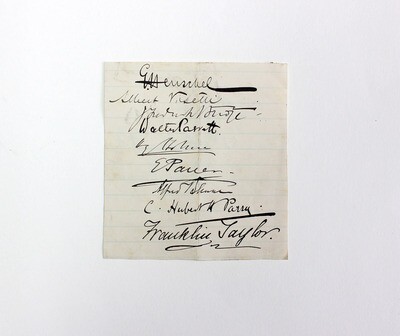 G Henschel
Albert Visetti
Frederick Bridge
Walter Parratt.
E Pauer.
C. Hubert H Parry
Franklin Taylor.